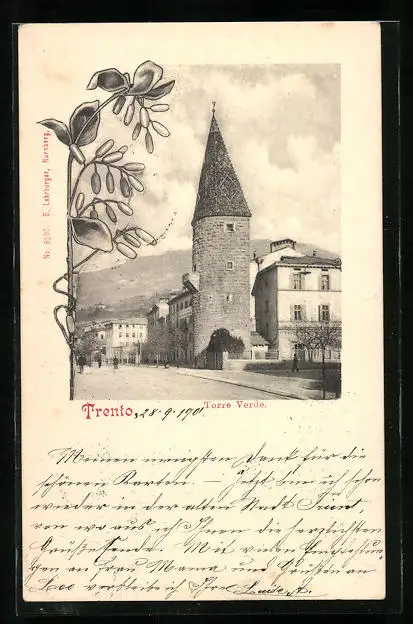 No. 8590. B. Lehrburger, Nurnberg.
Torre Verde.
Trento, 28-9-901
Meinen innigsten Dank für die
schönen Karten. – Jetzt bin ich schon
wieder in der alten Stadt Trient,
von wo aus ich Ihnen die herzlichsten
Grüße sende. Mit vielen Empfehlun-
gen an Frau Mama und Grüßen an
Leo verbleibe ich Ihre Luise A.